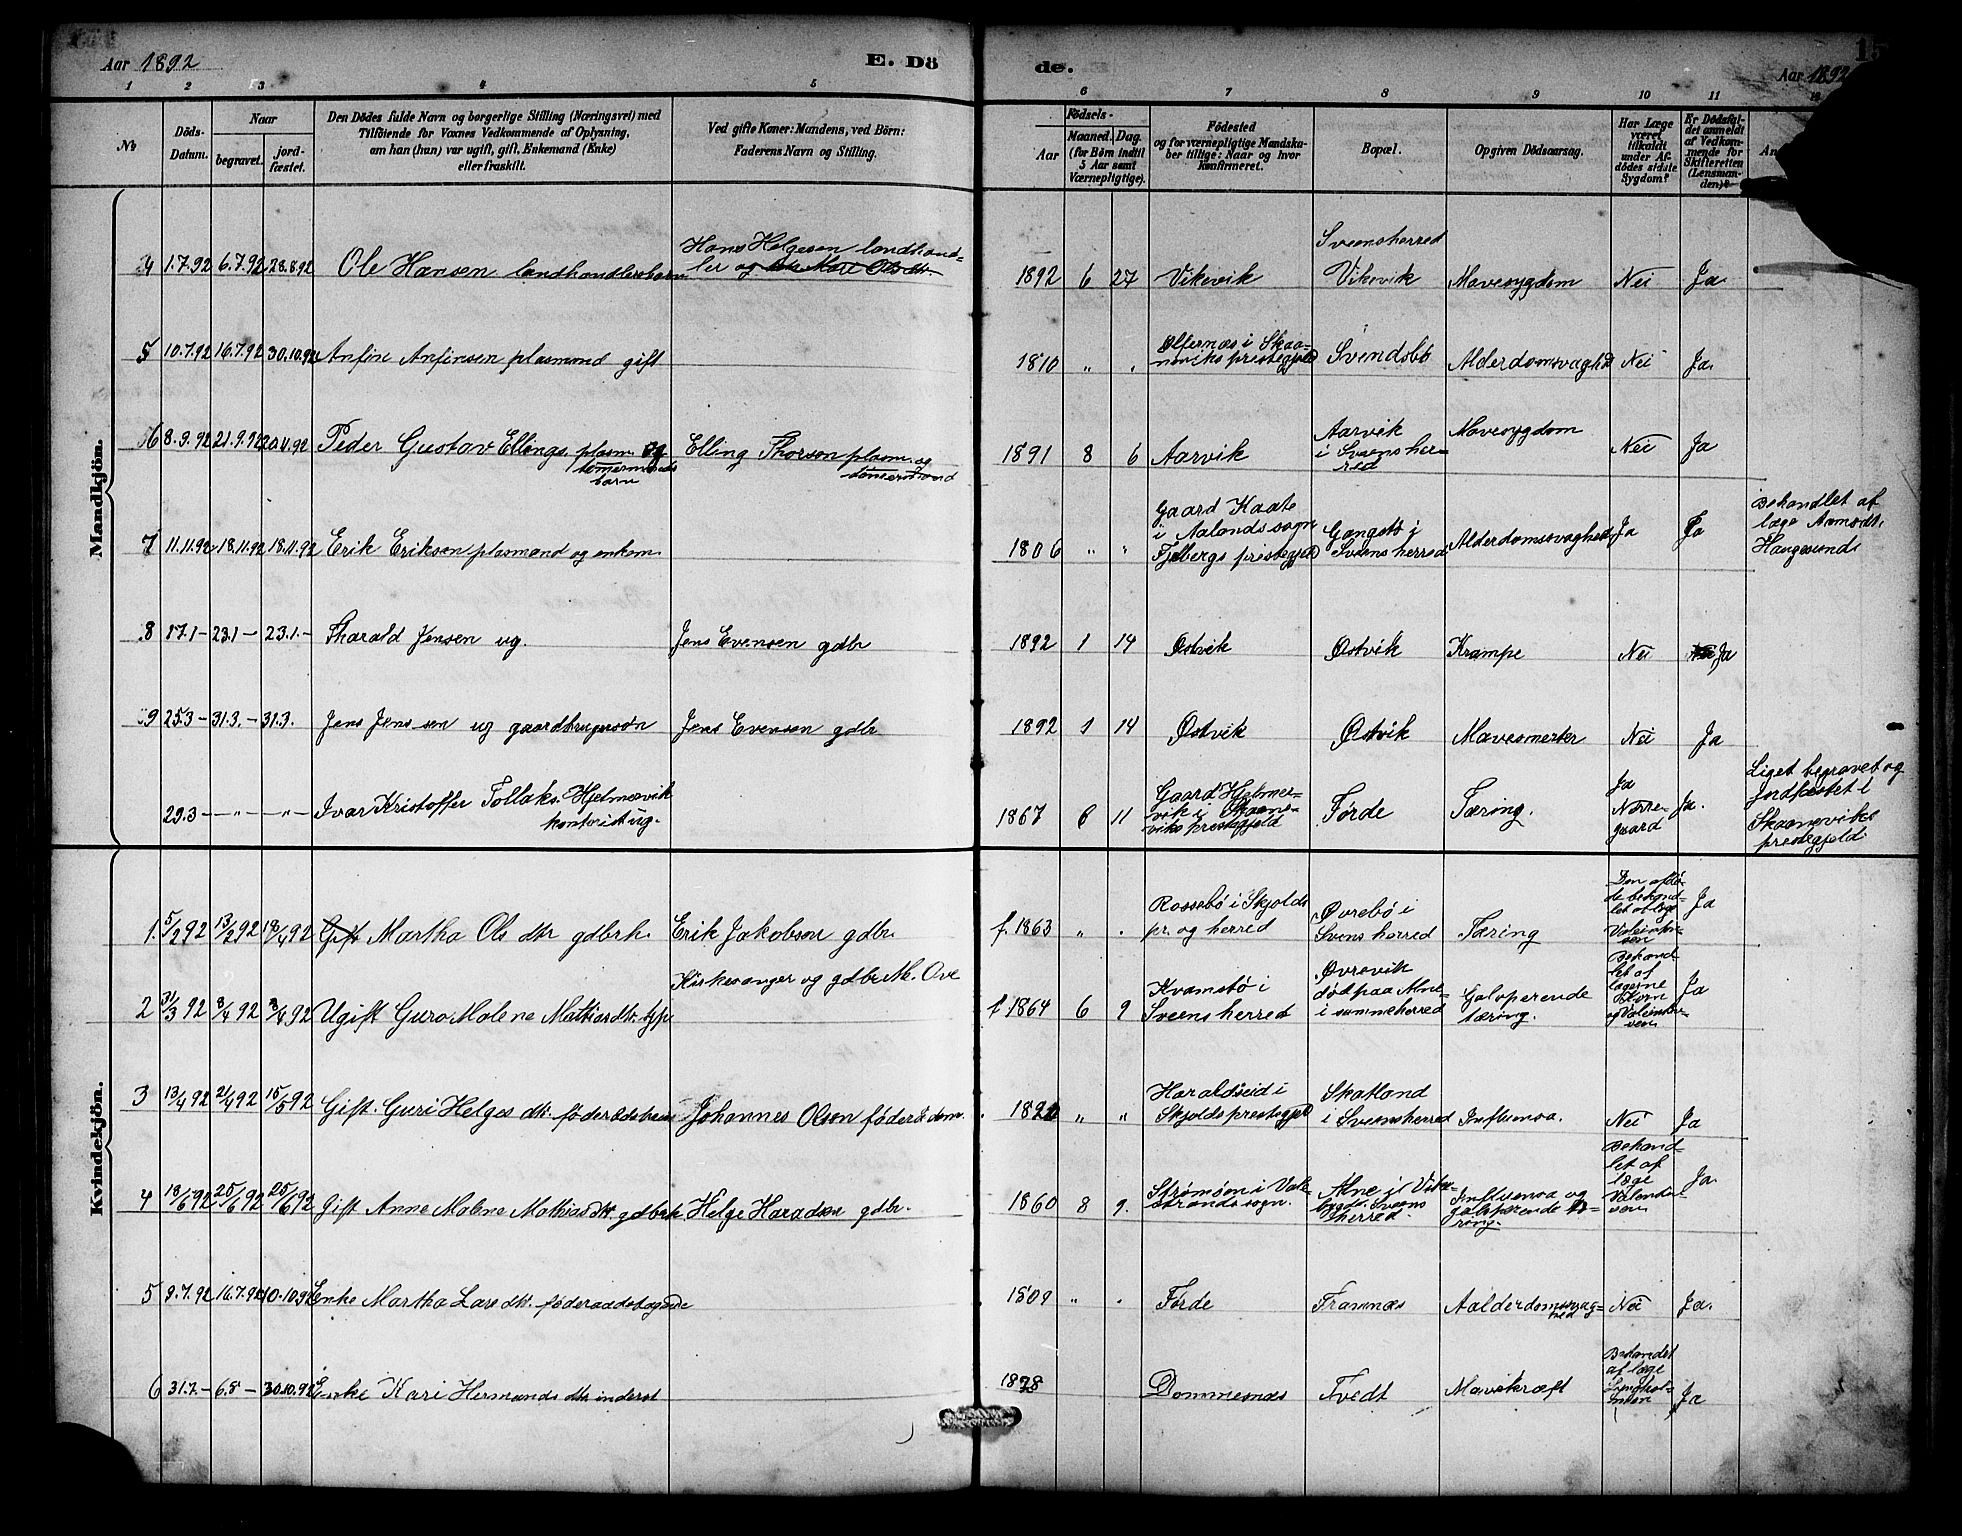 Aar 1892 E. Dö
de. Aar 1892
1 2 3 4 5
6 7 8 9 10 11
No
Döds-Datum.
Naar
begravet.
jord-fæstet.
Den Dödes fulde Navn og borgerlige Stilling (Næringsvei) med
Tilföiende for Voxnes Vedkommende af Oplysning,
om han (hun) var ugift, gift, Enkemand (Enke)
eller fraskilt.
Ved gifte Koner: Mandens, ved Börn:
Faderens Navn og Stilling.
Födsels-
Aar
Maaned. Dag.
(for Börn indtil
5 Aar samt
Værnepligtige).
Födested
og for værnepligtige Mandska-
ber tillige: Naar og hvor
konfirmeret.
Bopæl.
Opgiven Dödsaarsag.
Har Læge
været
tilkaldt
under Af-
dödes sidste
Sygdom?
Er Dödsfal-
det anmeldt
af Vedkom-
mende for
Skifteretten
(Lensman-
den)?
Mandkjön.
4 1.7.92 6.7.92 28.8.92 Ole Hansen landhandlersbarn
Hans Helgesen landhand-
ler og
1892 6 27 Vikevik
Sveensherred
Vikevik
Mavesygdom Nei Ja
5 10.7.92 16.7.92 30.10.92 Anfin Anfinsen plasmand gift
1810 " "
Ølfernæs i Skaa-
neviks prestegjeld
Svendsbø Alderdomsvaghed Nei Ja.
6 8.9.92 21.9.92 20.11.92 Peder Gustav Ellings. plasm. og
tømermands
barn
Elling Thorsen plasm. og
tømermand
1891 8 6 Aarvik
Aarvik
i Sveensher-
red
Mavesygdom Nei Ja
7 11.11.92 18.11.92 18.11.92 Erik Eriksen plasmand og enkem.
1806 " "
Gaard Kaate
i Aalands sogn
Fjelbergs prestegjeld
Gangstø i
Sveens herred
Alderdomssvaghed Ja Ja
Behandlet af
læge Aamodt,
Haugesund
8 17.1 - 23.1 - 23.1. - Tharald Jensen ug.
Jens Evensen gdbr
1892 1 14 Østvik Østvik Krampe Nei Ja
9 25.3 - 31.3. - 31.3. Jens Jenssen ug gaardbrugersøn
Jens Evensen gdbr
1892 1 14 Østvik Østvik Mavesmerter Nei Ja
29.3 - " - " - Ivar Kristoffer Tollaks. Hjelmervik
kontorist ug.
1867 6 11
Gaard Hjelmer-
vik i Skaane-
viks prestegjeld
Førde Tæring.
Ja
Nørre-
gaard
Ja.
Liget begravet og
Jordfæstet i
Skaaneviks
prestegjeld
Kvindekjön.
1. 5/2 92 13/2 92 18/4 92 Gift Martha Ols dtr gdbrk.
Erik Jakobsen gdbr.
f. 1863 " "
Rossebø i Skjolds
pr. og herred
Øvrebø i
Svens herred
Tæring
Den afdø-
de behand-
let af læge
Ja
2 31/3 92 8/4 92 3/4 92 Ugift Guro Malene Mathiasdtr.
Kirkesanger og gdbr M. Ove
f 1864 6 9
Kvamsbø i
Sveens herred
Øvrevik
død paa Alne
i samme herred
Galoperende
tæring.
Behand
let af
lægerne
Horn
og
Ja
3 13/4 92 21/4 92 15/5 92 Gift. Guri Helges dtr. føderaadskone
Johannes Olsen føderådsm.
" "
Haraldseid i
Skjolds prestegjeld
Skatland
i Sveensherred
Influensa. Nei Ja
4 18/6 92 25/6 92 25/6 92 Gift Anne Malene Mathias dtr gdbrk
Helge Haradsen gdbr.
1860 8 9.
Strømøen i Vale-
strands sogn.
Alne i Vike-
bygdt. Sveens
herred.
Influensa og
galoperende tæ-
ring.
Behand-
let af
læge
Valentin-
sen
Ja.
5 9.7.92 16.7.92 10.10.92 Enke Martha Lars dtr. føderaadstagerske
1809 " " Førde Framnæs
Aalderdomssvag-
hed
Nei Ja.
6 31.7 - 6.8 - 30.10.92 Enke Kari Hermunds dtr inderst
Dommesnæs Tvedt Mavekræft
Behandlet
af læge
Ja